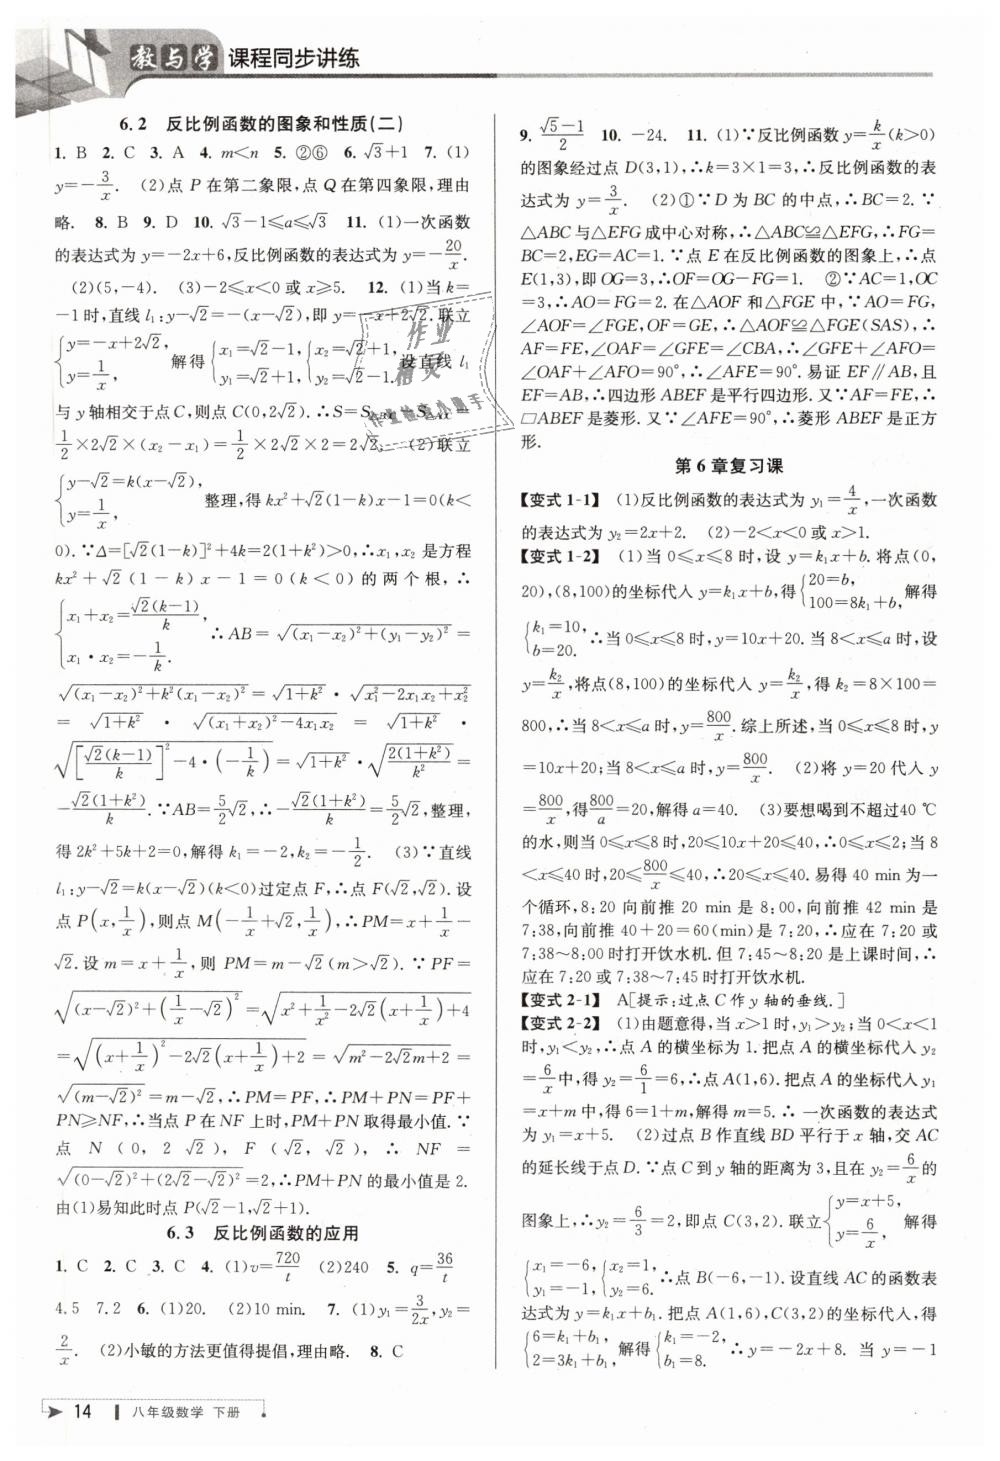 教与学 课程同步讲练
6.2 反比例函数的图象和性质(二)
1. B 2. C 3. A 4. m<n 5. ②⑥ 6. √3+1 7. (1)
y=-3/x. (2)点 P 在第二象限,点 Q 在第四象限,理由
略. 8. B 9. D 10. √3-1≤a≤√3 11. (1)一次函数
的表达式为 y=-2x+6,反比例函数的表达式为 y=-20/x.
(2)(5,-4). (3)-2≤x<0 或 x≥5. 12. (1)当 k=
-1时,直线 l₁:y-√2=-(x-√2),即 y=-x+2√2.联立
{y=-x+2√2, y=1/x, 解得 {x₁=√2-1, y₁=√2+1, {x₂=√2+1, y₂=√2-1. 设直线 l₁
与 y 轴相交于点 C,则点 C(0,2√2).∴S=
1/2×2√2×(x₂-x₁)=1/2×2√2×2=2√2. (2)联立
{y-√2=k(x-√2), y=1/x, 整理,得 kx²+√2(1-k)x-1=0(k<
0).∵Δ=[√2(1-k)]²+4k=2(1+k²)>0,∴x₁,x₂ 是方程
kx²+√2(1-k)x-1=0(k<0)的两个根,∴
{x₁+x₂=√2(k-1)/k, x₁·x₂=-1/k. ∴AB=√((x₁-x₂)²+(y₁-y₂)²)=
√((x₁-x₂)²+k²(x₁-x₂)²)=√(1+k²)·√(x₁²-2x₁x₂+x₂²)
=√(1+k²)·√((x₁+x₂)²-4x₁x₂)=√(1+k²)·
√([√2(k-1)/k]²-4·(-1/k))=√(1+k²)·√(2(1+k²)/k²)=
-√2(1+k²)/k.∵AB=5/2√2,∴-√2(1+k²)/k=5/2√2,整理,
得2k²+5k+2=0,解得 k₁=-2,k₂=-1/2. (3)∵直线
l₁:y-√2=k(x-√2)(k<0)过定点 F,∴点 F(√2,√2).设
点 P(x,1/x),则点 M(-1/x+√2,1/x),∴PM=x+1/x-
√2.设 m=x+1/x,则 PM=m-√2(m>√2).∵PF=
√((x-√2)²+(1/x-√2)²)=√(x²+1/x²-2√2(x+1/x)+4)
=√((x+1/x)²-2√2(x+1/x)+2)=√(m²-2√2m+2)=
√((m-√2)²)=m-√2,∴PM=PF,∴PM+PN=PF+
PN≥NF,∴当点 P 在 NF 上时,PM+PN 取得最小值.∵
点 N(0,2√2),F(√2,√2),∴NF=
√((0-√2)²+(2√2-√2)²)=2,∴PM+PN 的最小值是 2.
由(1)易知此时点 P(√2-1,√2+1).
6.3 反比例函数的应用
1. C 2. C 3. C 4. (1)v=720/t (2)240 5. q=36/t
4.5 7.2 6. (1)20. (2)10 min. 7. (1)y₁=3/2x,y₂=
2/x. (2)小敏的方法更值得提倡,理由略. 8. C
14 八年级数学 下册
9. (√5-1)/2 10. -24. 11. (1)∵反比例函数 y=k/x(k>0)
的图象经过点 D(3,1),∴k=3×1=3,∴反比例函数的表
达式为 y=3/x. (2)①∵D 为 BC 的中点,∴BC=2.∵
△ABC与△EFG成中心对称,∴△ABC≌△EFG,∴FG=
BC=2,EG=AC=1.∵点 E 在反比例函数的图象上,∴点
E(1,3),即 OG=3,∴OF=OG-FG=1. ②∵AC=1,OC
=3,∴AO=FG=2.在△AOF 和△FGE 中,∵AO=FG,
∠AOF=∠FGE,OF=GE,∴△AOF≌△FGE(SAS),∴
AF=FE,∠OAF=∠GFE=∠CBA,∴∠GFE+∠AFO=
∠OAF+∠AFO=90°,∴∠AFE=90°.易证 EF∥AB,且
EF=AB,∴四边形 ABEF 是平行四边形.又∵AF=FE,∴
□ABEF 是菱形.又∵∠AFE=90°,∴菱形 ABEF 是正方
形.
第6章复习课
【变式1-1】 (1)反比例函数的表达式为 y₁=4/x,一次函数
的表达式为 y₂=2x+2. (2)-2<x<0 或 x>1.
【变式1-2】 (1)当 0≤x≤8 时,设 y=k₁x+b.将点(0,
20),(8,100)的坐标代入 y=k₁x+b,得{20=b, 100=8k₁+b, 解得
{k₁=10, b=20. ∴当 0≤x≤8 时,y=10x+20.当 8<x≤a 时,设
y=k₂/x,将点(8,100)的坐标代入 y=k₂/x,得 k₂=8×100=
800,∴当 8<x≤a 时,y=800/x.综上所述,当 0≤x≤8 时,y
=10x+20;当 8<x≤a 时,y=800/x. (2)将 y=20 代入 y
=800/x,得800/a=20,解得 a=40. (3)要想喝到不超过40 ℃
的水,则当 0≤x≤8 时,20≤10x+20≤40,∴0≤x≤2;当 8
<x≤40 时,20≤800/x≤40,∴20≤x≤40.易得 40 min 为一
个循环,8:20 向前推 20 min 是 8:00,向前推 42 min 是
7:38,向前推 40+20=60(min)是 7:20,∴应在 7:20 或
7:38~8:00 时打开饮水机.但 7:45~8:20 是上课时间,∴
应在 7:20 或 7:38~7:45 时打开饮水机.
【变式2-1】 A[提示:过点 C 作 y 轴的垂线.]
【变式2-2】 (1)由题意得,当 x>1 时,y₁>y₂;当 0<x<1
时,y₁<y₂,∴点 A 的横坐标为 1.把点 A 的坐标代入 y₂
=6/x中,得 y₂=6/1=6,∴点 A(1,6).把点 A 的坐标代入 y₁
=x+m 中,得 6=1+m,解得 m=5.∴一次函数的表达式
为 y₁=x+5. (2)过点 B 作直线 BD 平行于 x 轴,交 AC
的延长线于点 D.∵点 C 到 y 轴的距离为 3,且在 y₂=6/x的
图象上,∴y₂=6/3=2,即点 C(3,2).联立{y=x+5, y=6/x, 解得
{x₁=-6, y₁=-1, {x₂=1, y₂=6. ∴点 B(-6,-1).设直线 AC 的函数表
达式为 y=k₁x+b₁.把点 A(1,6),C(3,2)的坐标代入,得
{6=k₁+b₁, 2=3k₁+b₁, 解得{k₁=-2, b₁=8. ∴y=-2x+8. 当 y=-1